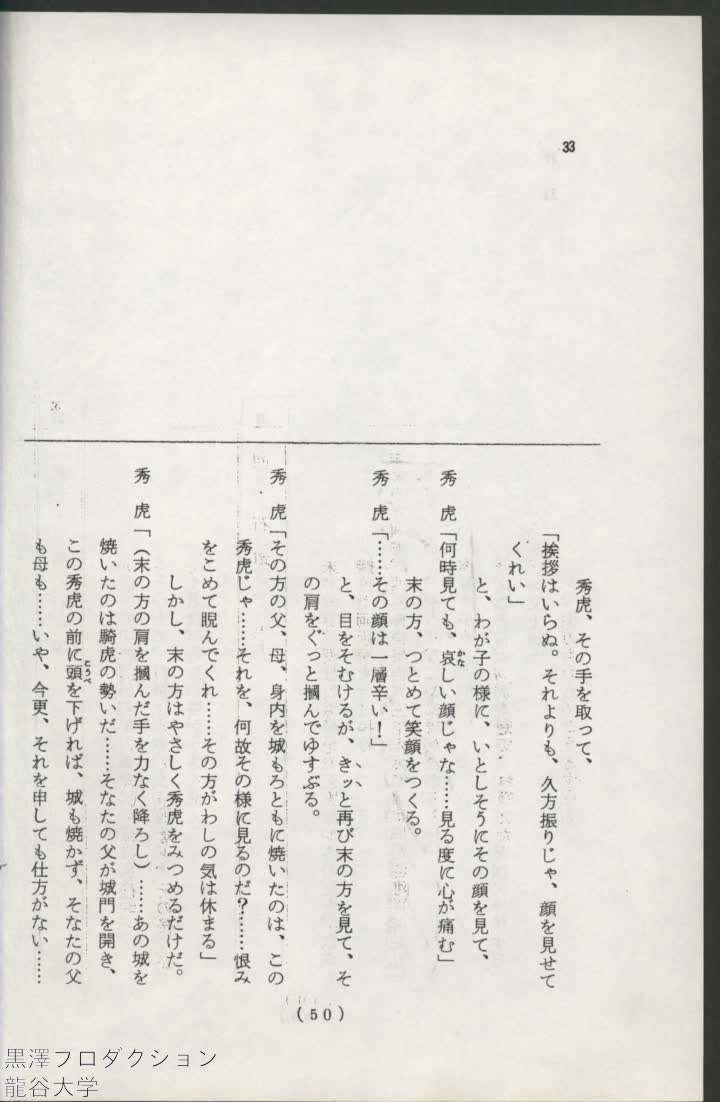 33
秀虎、その手を取って、
「挨拶はいらぬ。それよりも、久方振りじゃ、顔を見せて
くれい」
と、わが子の様に、いとしそうにその顔を見て、
秀　虎「何時見ても、哀しい顔じゃな……見る度に心が痛む」
末の方、つとめて笑顔をつくる。
秀　虎「……その顔は一層辛い！」
と、目をそむけるが、きッと再び末の方を見て、そ
の肩をぐっと摑んでゆすぶる。
秀　虎「その方の父、母、身内を城もろともに焼いたのは、この
秀虎じゃ……それを、何故その様に見るのだ？……恨み
をこめて睨んでくれ……その方がわしの気は休まる」
しかし、末の方はやさしく秀虎をみつめるだけだ。
秀　虎「（末の方の肩を摑んだ手を力なく降ろし）……あの城を
焼いたのは騎虎の勢いだ……そなたの父が城門を開き、
この秀虎の前に頭を下げれば、城も焼かず、そなたの父
も母も……いや、今更、それを申しても仕方がない……
（50）
黒澤プロダクション
龍谷大学